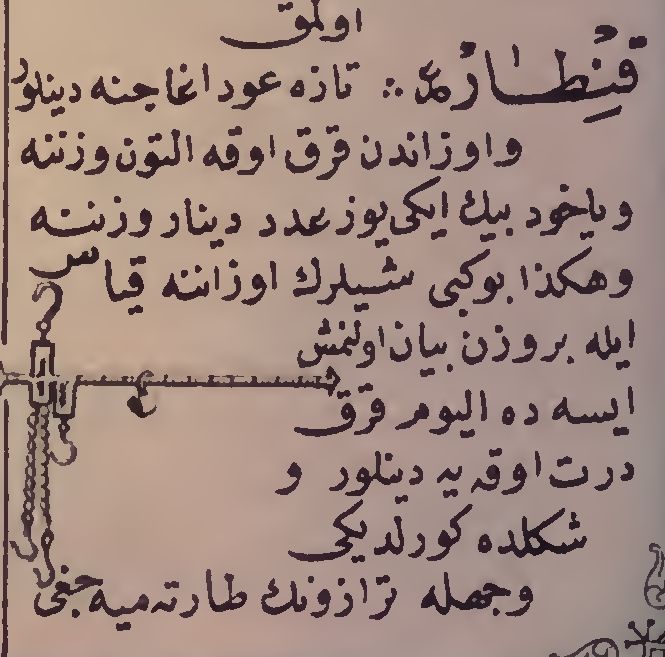 اولمق
قِنْطَارْ ع ∴ تازه عود اغاجنه دينلور
واوزاندن قرق اوقه التون وزننه
وياخود بيك ايكى‌يوز عدد دينار وزننه
وهكذا بوكبى شيلرك اوزاننه قياس
ايله بروزن بيان اولنمش
ايسه ده اليوم قرق
درت اوقه يه دينلور و
شكلده كورلديكى
وجهله ترازونك طارته‌ميه‌جغى